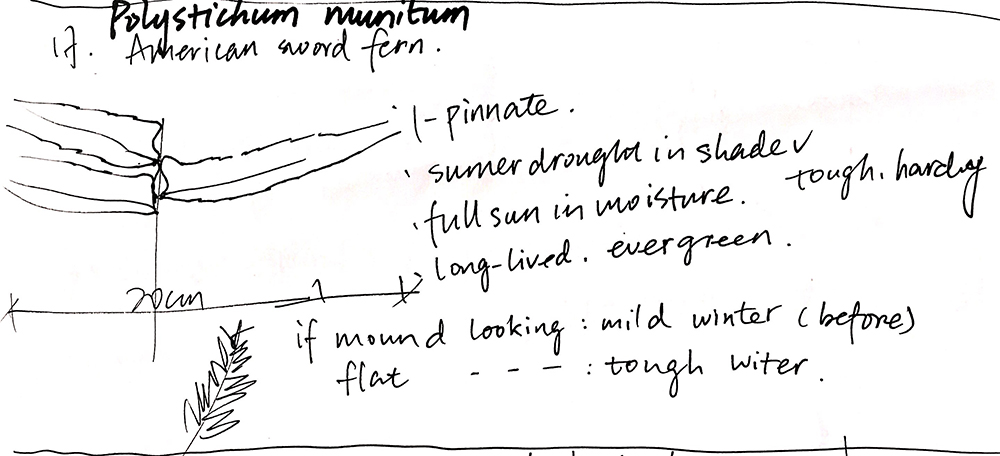 Polystichum munitum
17. American sword fern.
· 1-pinnate.
· sumer drought in shade √
tough. hardy
· full sun in moisture.
· long-lived. evergreen.
20cm
if mound looking : mild winter (before)
flat - - - : tough witer.